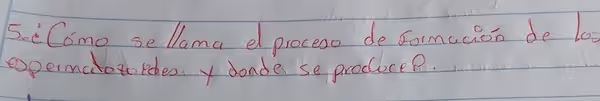 5. ¿Cómo se llama el proceso de formación de los
espermatozoides y donde se produce?.